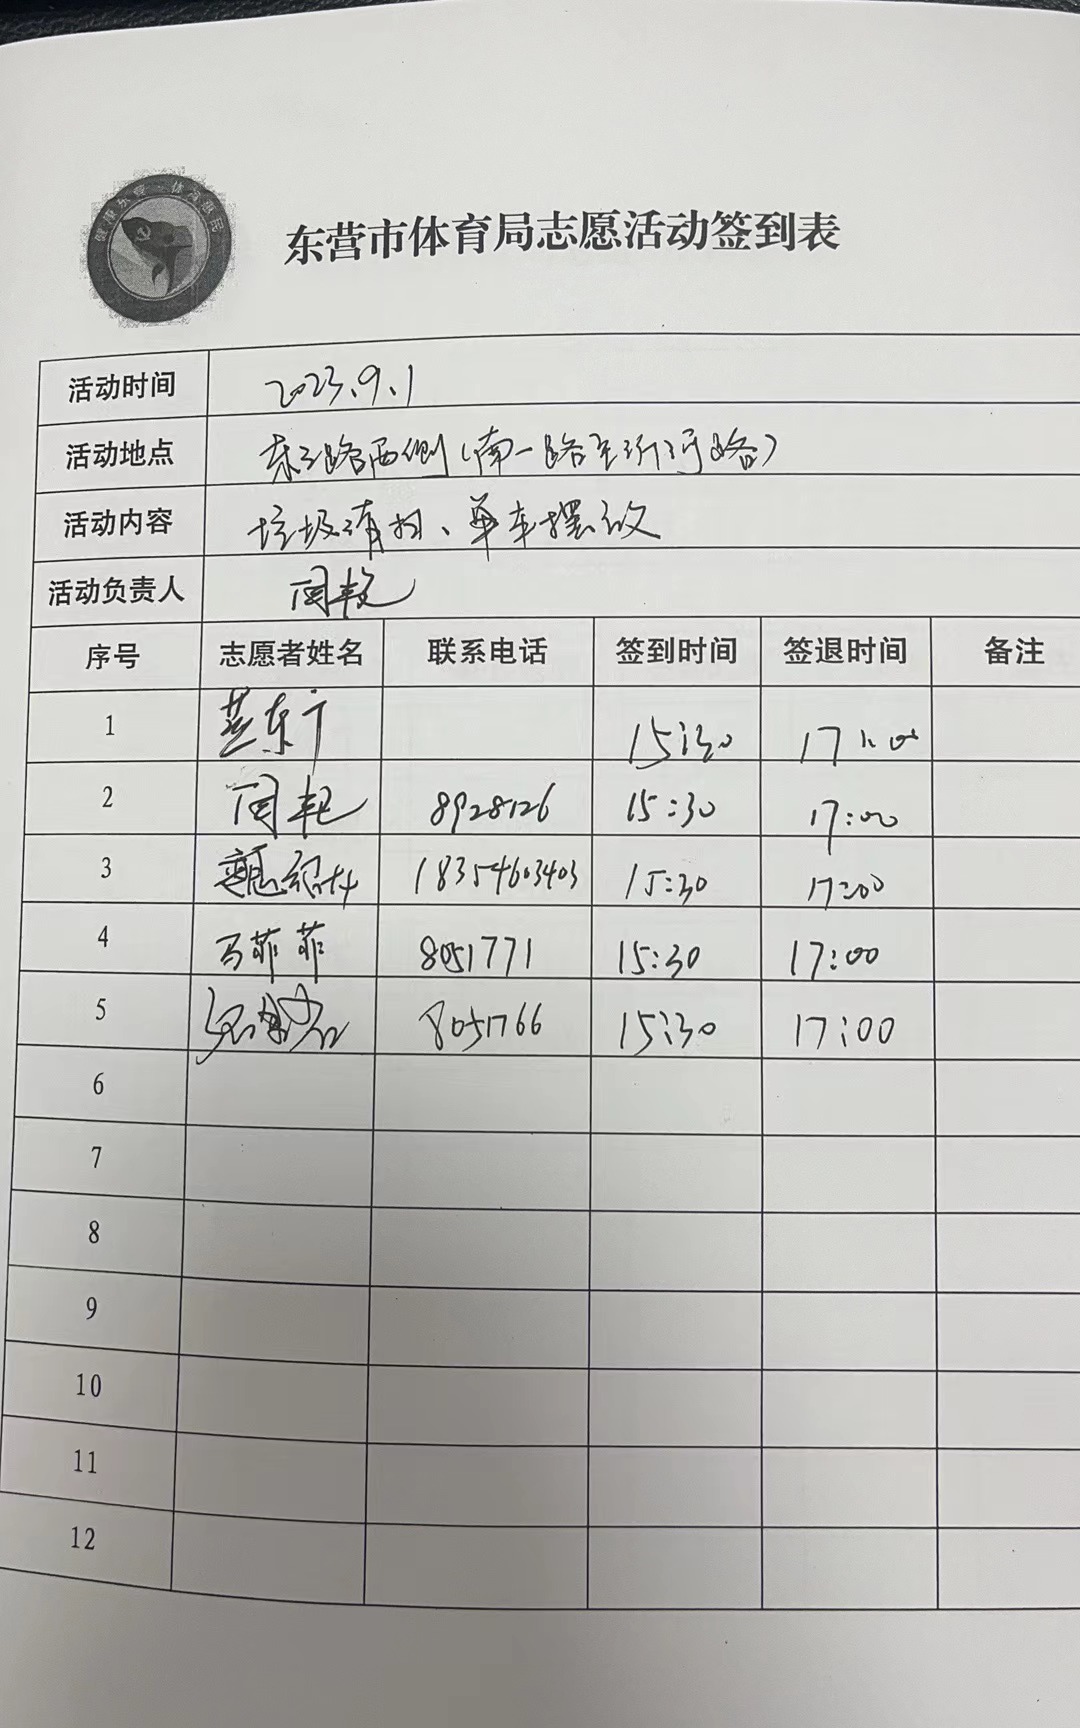 健康东营·体育惠民
东营市体育局志愿活动签到表
活动时间 2023.9.1
活动地点 东三路西侧(南一路至沂河路)
活动内容 垃圾清扫、单车摆放
活动负责人
序号 志愿者姓名 联系电话 签到时间 签退时间 备注
1 15:30 17:00
2 8928126 15:30 17:00
3 18354603403 15:30 17:00
4 马菲菲 8051771 15:30 17:00
5 8051766 15:30 17:00
6
7
8
9
10
11
12